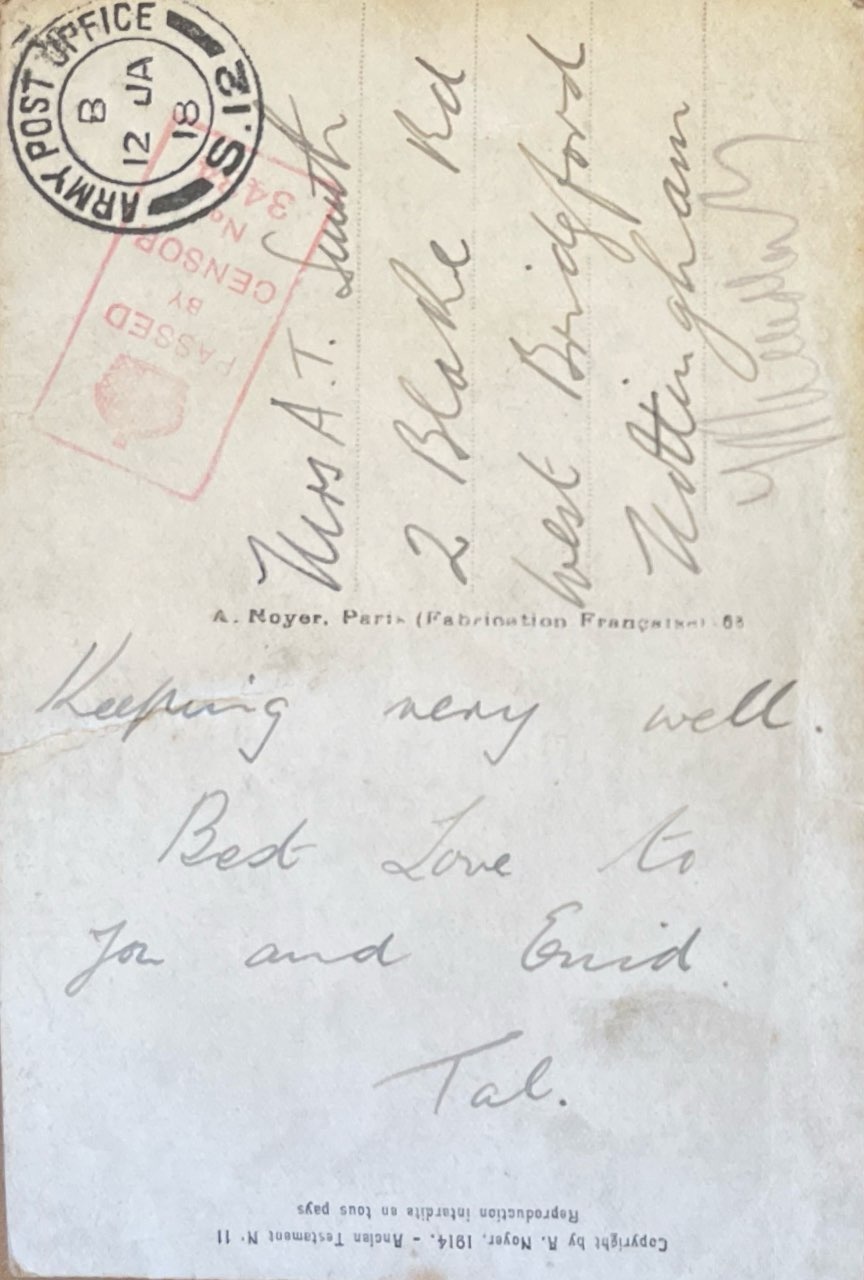 ARMY POST OFFICE S.12
B
12 JA
18
PASSED
BY
CENSOR
No.
Mrs A.T. Smith
2 Blake Rd
West Bridgford
Nottingham
A. Noyer, Paris (Fabrication Française)
Keeping very well.
Best Love to
You and Enid.
Tal.
Copyright by A. Noyer, 1914. - Ancien Testament N° 11
Reproduction interdite en tous pays